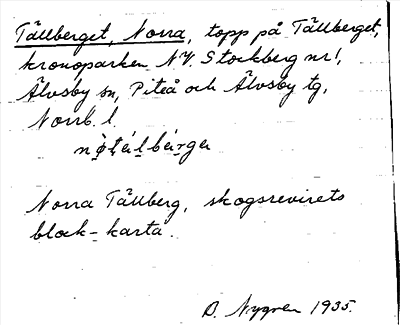 Tällberget, Norra, topp på Tällberget,
kronoparken N.V. Stockberg nr 1,
Älvsby sn, Piteå och Älvsby tg,
Norrb. l.
Norra Tällberg, skogsrevirets
block-karta.
D. Nygren 1935.